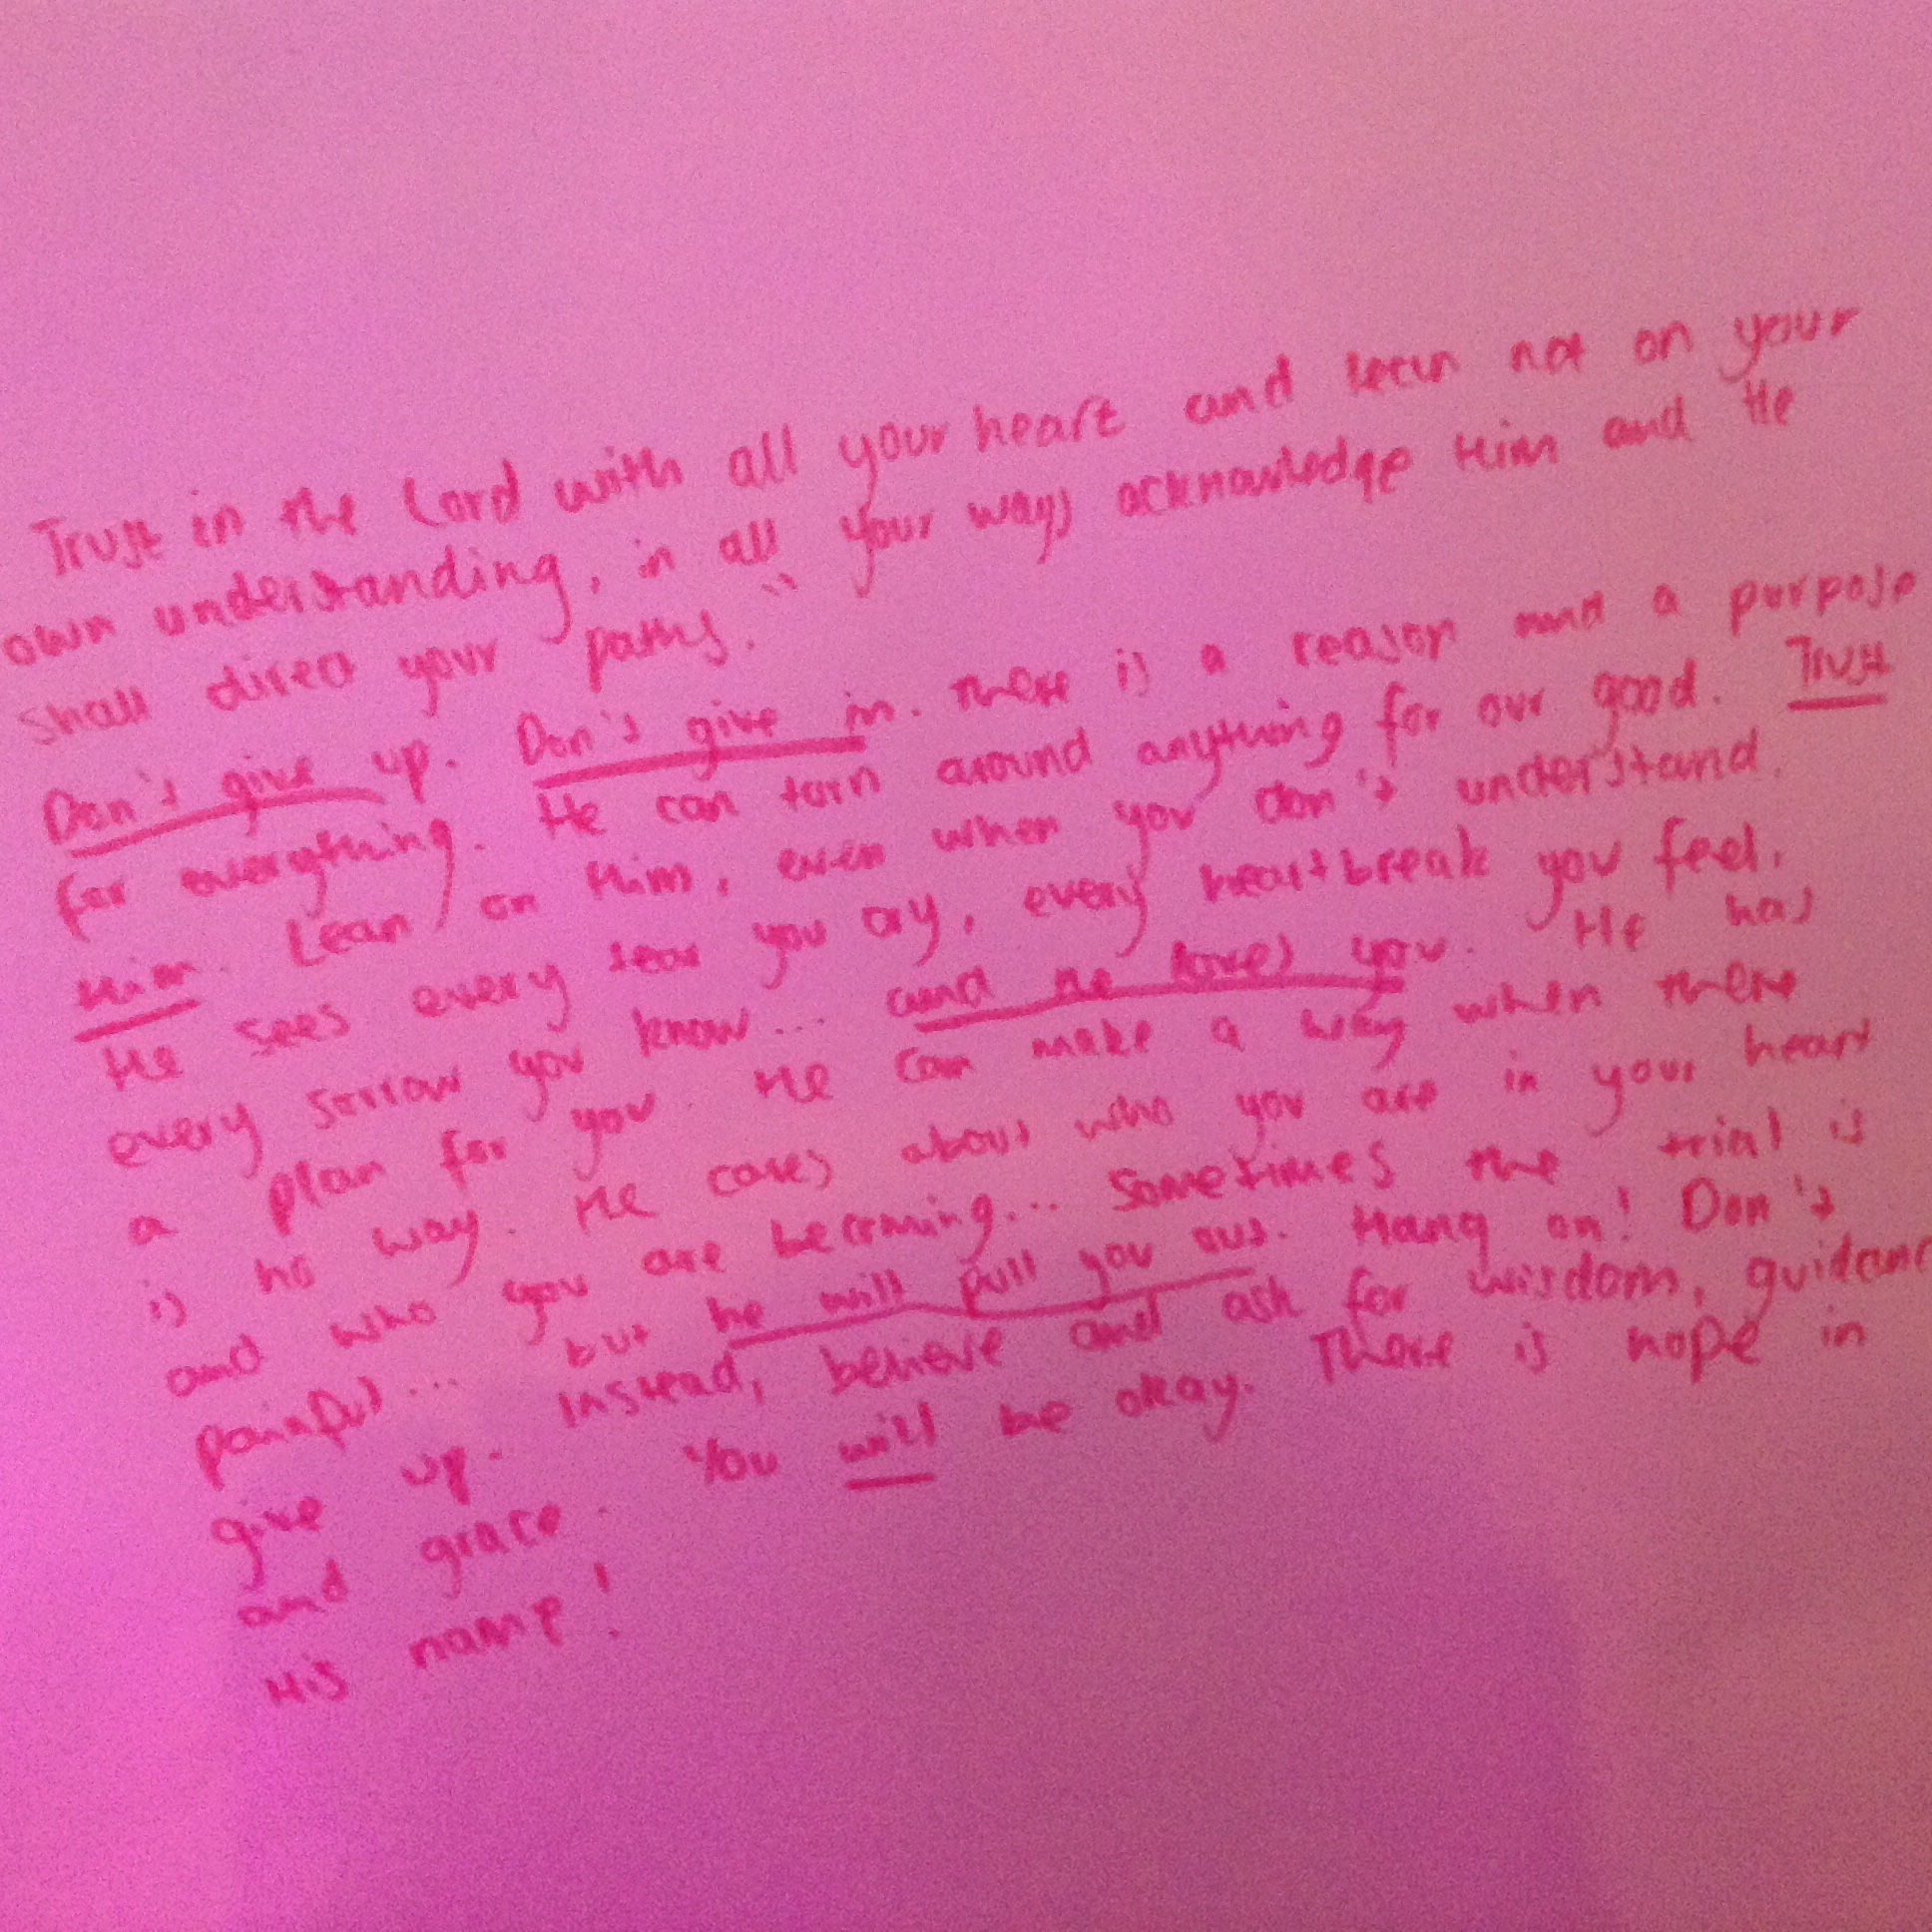 Trust in the Lord with all your heart and lean not on your
own understanding, in all your ways acknowledge Him and He
shall direct your paths."
Don't give up. Don't give in. There is a reason and a purpose
for everything. He can turn around anything for our good. Trust
Him. Lean on Him, even when you don't understand.
He sees every tear you cry, every heartbreak you feel,
every sorrow you know... and he loves you. He has
a plan for you. He can make a way when there
is no way. He cares about who you are in your heart
and who you are becoming... Sometimes the trial is
painful... but he will pull you out. Hang on! Don't
give up. Instead, believe and ask for wisdom, guidanc
and grace. You will be okay. There is hope in
His name!